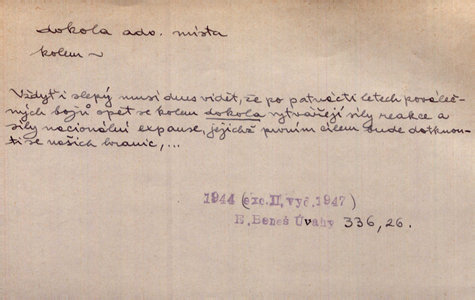 dokola adv. místa
kolem ~
Vždyť i slepý musí dnes vidět, že po patnácti letech pováleč-
ných bojů opět se kolem dokola vytvářejí síly reakce a
síly nacionální expanse, jejichž prvním cílem bude dotknou-
ti se našich hranic,...
1944 (exc. II, vyd. 1947)
E. Beneš Úvahy 336, 26.